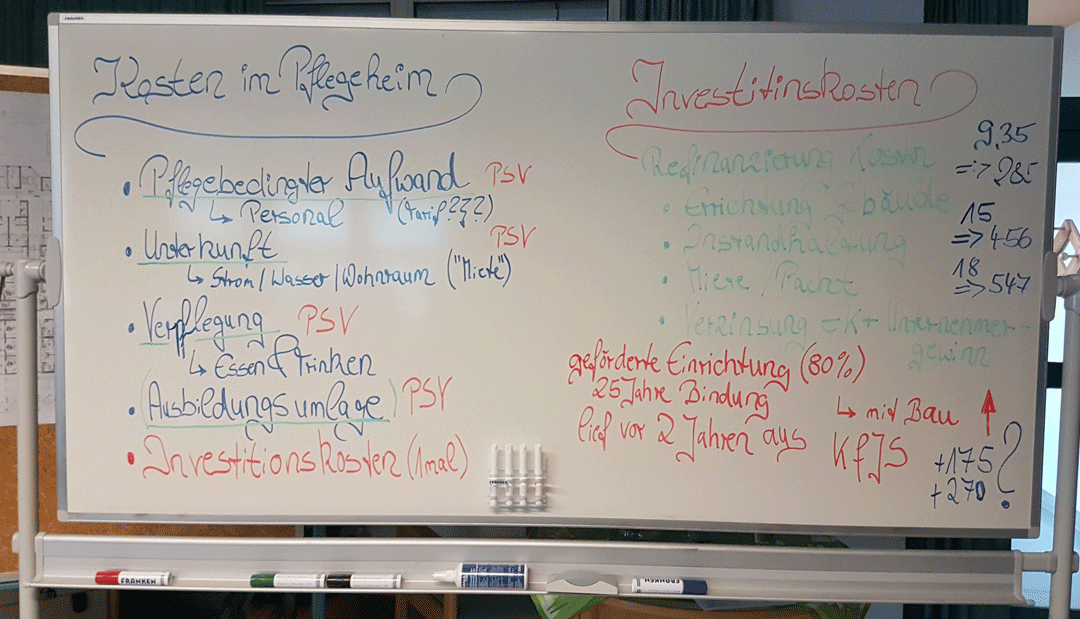 FRANKEN
Kosten im Pflegeheim
• Pflegebedingter Aufwand PSV
↳ Personal (Tarif???)
• Unterkunft PSV
↳ Strom/Wasser/Wohnraum ("Miete")
• Verpflegung PSV
↳ Essen & Trinken
• (Ausbildungsumlage) PSV
• Investitionskosten (1mal)
Investitinskosten
Refinanzierung Kosten
• Errichtung Gebäude
• Instandhaltung
• Miete/Pacht
• Verzinsung EK + Unternehmer-
gewinn
9,35
=> 285
15
=> 456
18
=> 547
geförderte Einrichtung (80%)
25 Jahre Bindung
lief vor 2 Jahren aus
↳ mit Bau
KfJS
+175
+270
?
FRANKEN
FRANKEN
FRANKEN